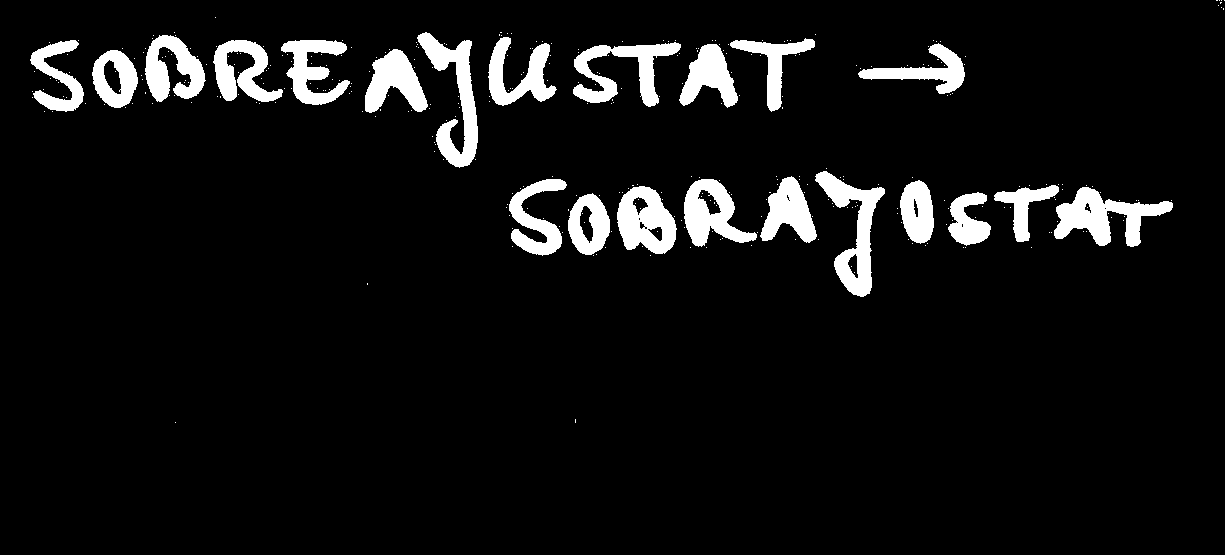 SOBREAJUSTAT →
SOBRAJOSTAT